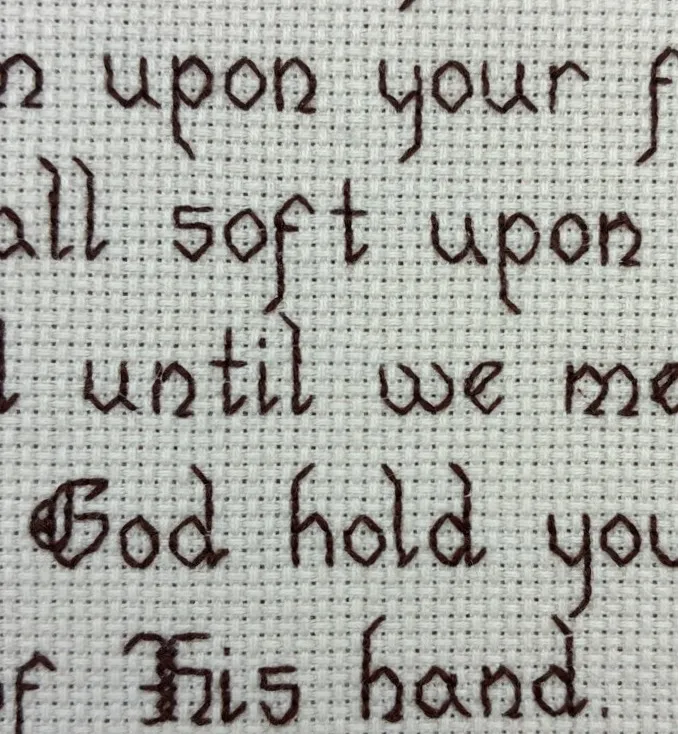 n upon your f
all soft upon
l until we me
God hold you
of His hand.